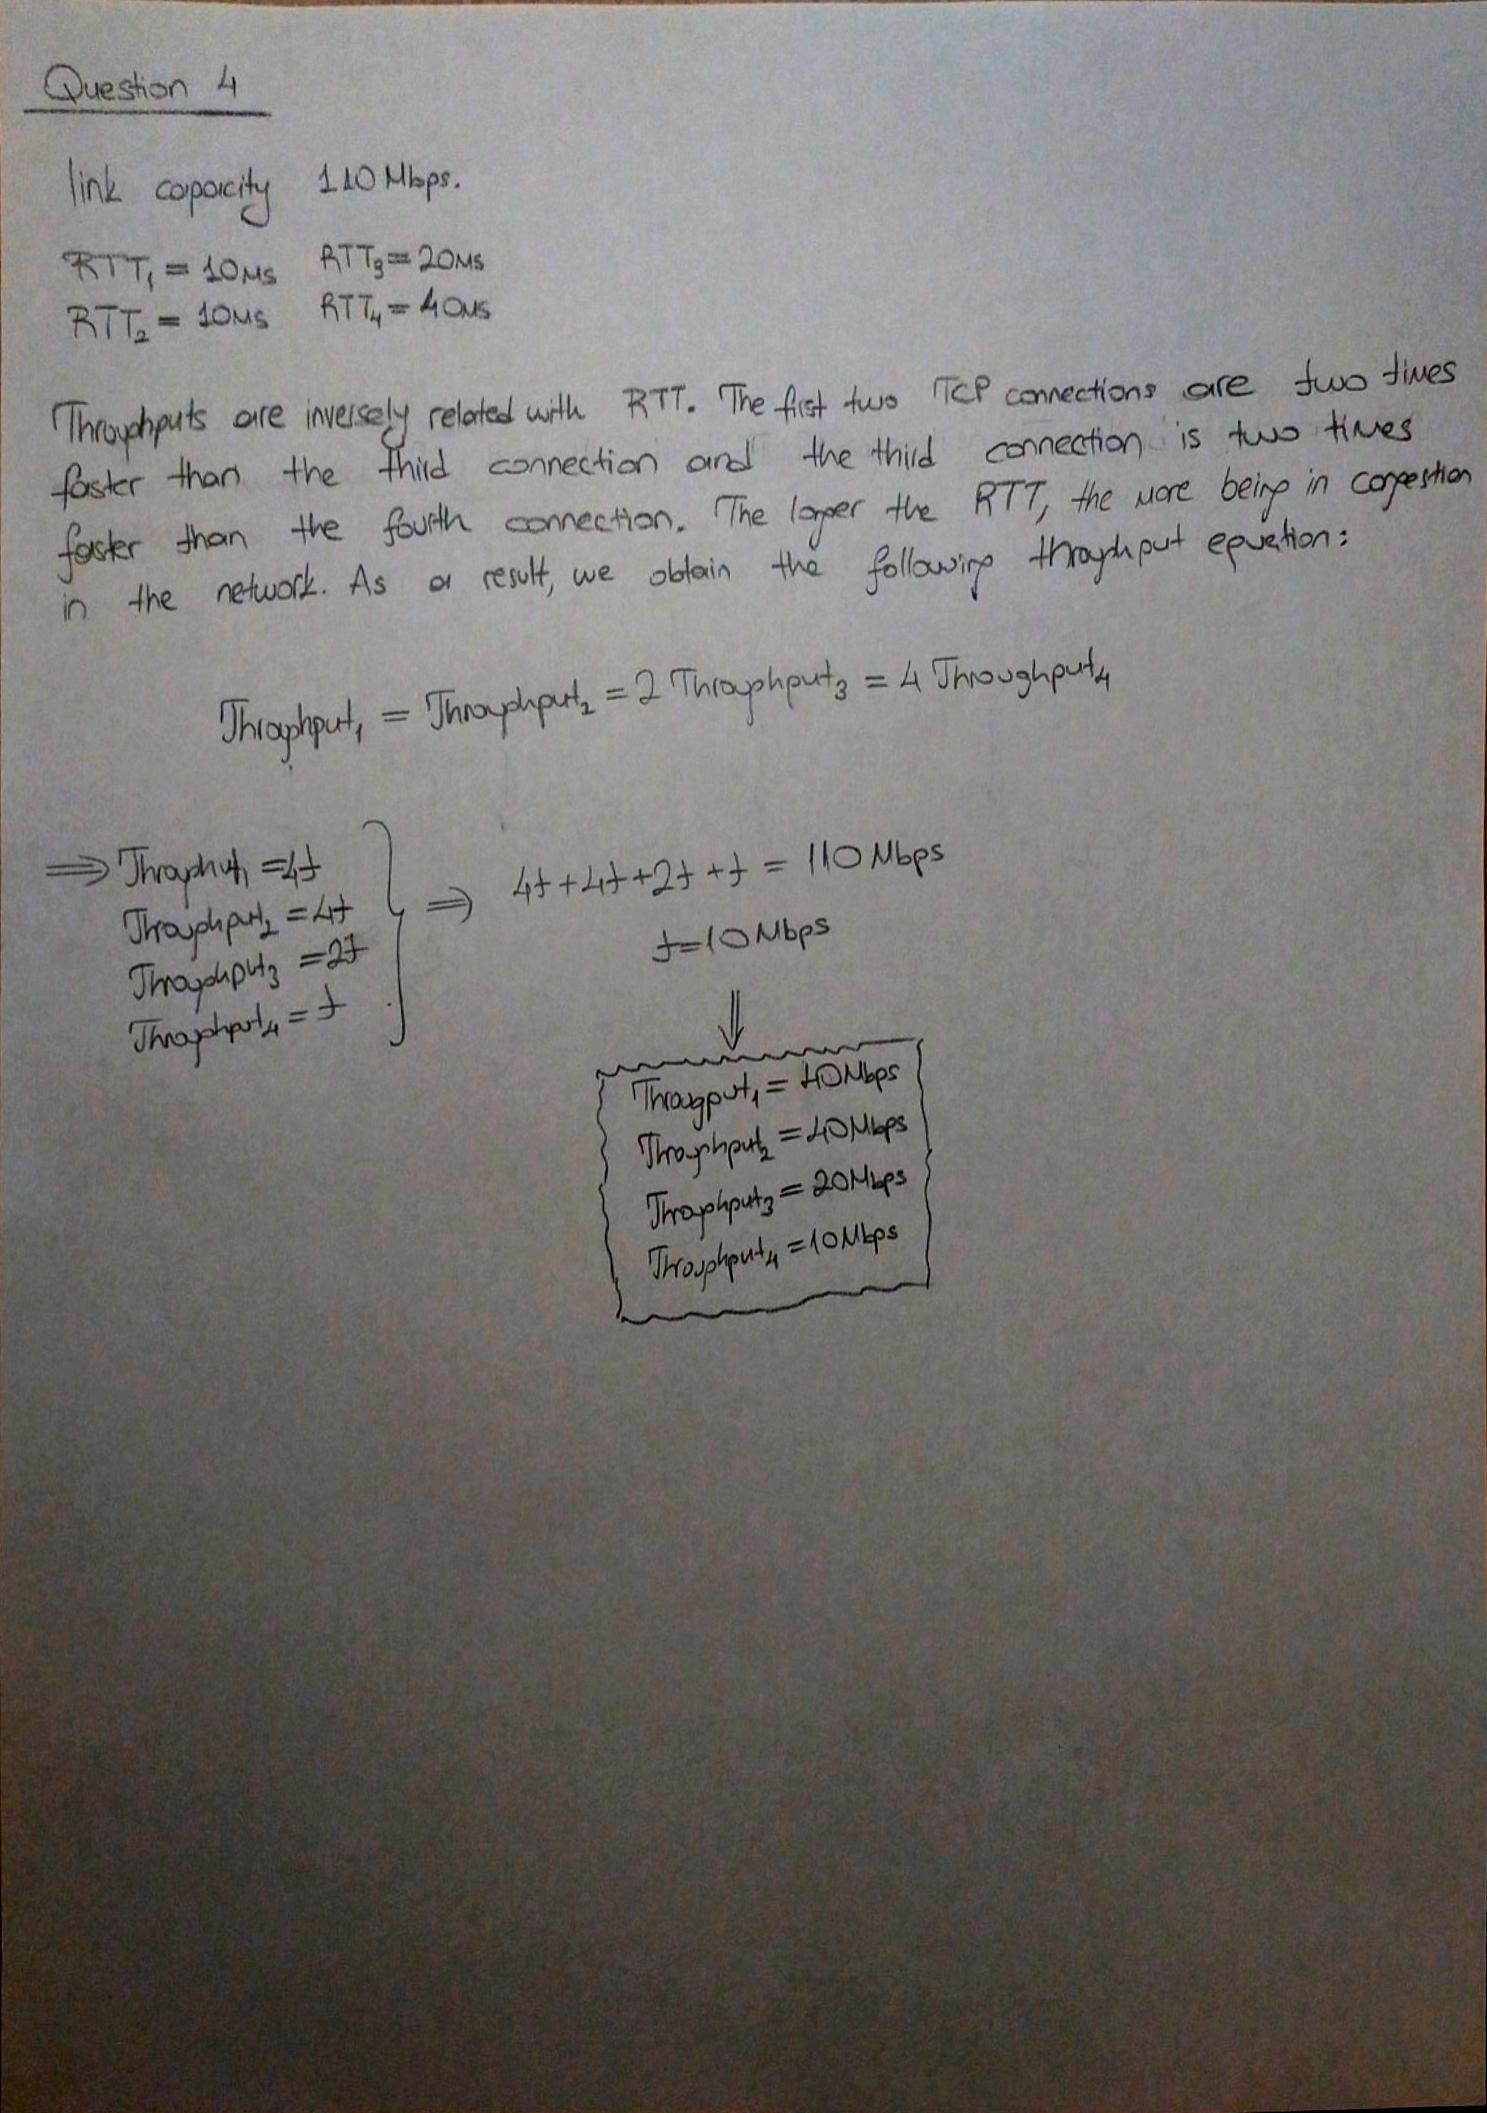 Question 4
link capacity 110 Mbps.
RTT₁ = 10ms RTT₃ = 20ms
RTT₂ = 10ms RTT₄ = 40ms
Throughputs are inversely related with RTT. The first two TCP connections are two times
faster than the third connection and the third connection is two times
faster than the fourth connection. The larger the RTT, the more being in congestion
in the network. As a result, we obtain the following throughput equation:
Throughput₁ = Throughput₂ = 2 Throughput₃ = 4 Throughput₄
⇒ Throughput₁ = 4t
Throughput₂ = 4t
Throughput₃ = 2t
Throughput₄ = t
⇒ 4t + 4t + 2t + t = 110 Mbps
t = 10 Mbps
⇓
Througput₁ = 40Mbps
Throughput₂ = 40Mbps
Throughput₃ = 20Mbps
Throughput₄ = 10Mbps